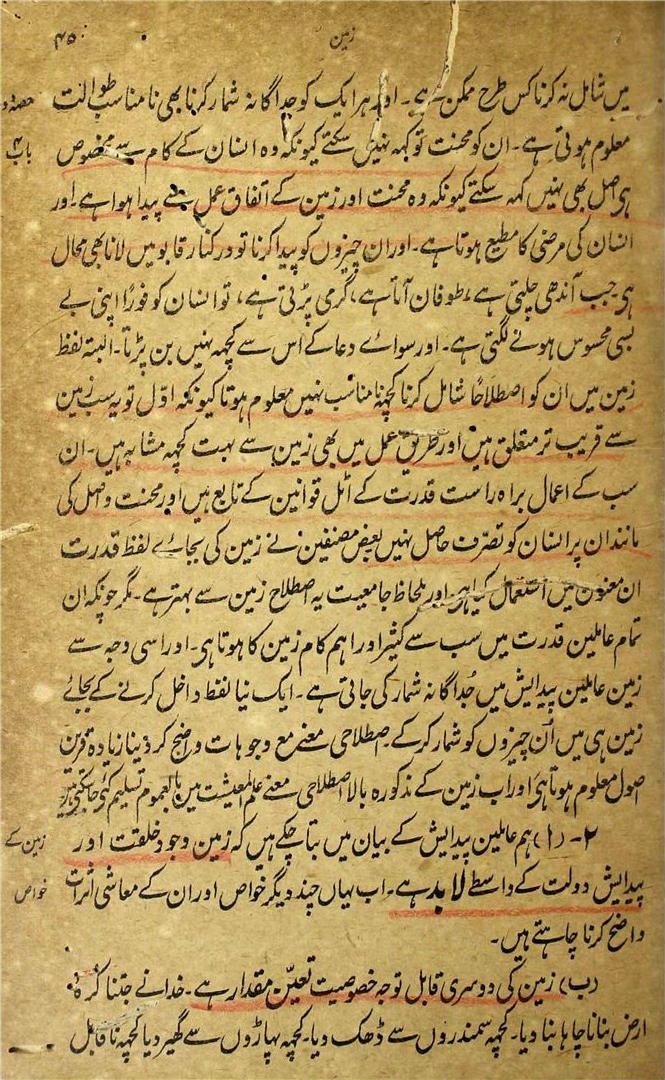 زمین
۴۵
میں شامل نہ کرنا کس طرح ممکن ہے۔ اور ہر ایک کو جداگانہ شمار کرنا بھی نامناسب طوالت
حصہ دوم
معلوم ہوتی ہے۔ ان کو محنت تو کہہ نہیں سکتے کیونکہ وہ انسان کے کام سے مخصوص
باب ۴
ہی اصل بھی نہیں کہہ سکتے کیونکہ وہ محنت اور زمین کے اتفاق عمل سے پیدا ہوا ہے۔ اور
انسان کی مرضی کا مطیع ہوتا ہے۔ اور ان چیزوں کو پیدا کرنا تو درکنار قابو میں لانا بھی محال
ہی جب آندھی چلتی ہے، طوفان آتا ہے، گرمی پڑتی ہے، تو انسان کو فوراً اپنی بے
بسی محسوس ہونے لگتی ہے۔ اور سوائے دعا کے اس سے کچھہ نہیں بن پڑتا۔ البتہ لفظ
زمین میں ان کو اصطلاحاً شامل کرنا کچھہ نامناسب نہیں معلوم ہوتا کیونکہ اوّل تو یہ سب زمین
سے قریب تر متعلق ہیں اور طریق عمل میں بھی زمین سے بہت کچھہ مشابہ ہیں۔ ان
سب کے اعمال براہ راست قدرت کے اٹل قوانین کے تابع ہیں اور محنت و اصل کی
مانند ان پر انسان کو تصرّف حاصل نہیں بعض مصنفین نے زمین کی بجائے لفظ قدرت
ان معنوں میں استعمال کیا ہو اور بلحاظ جامعیت یہ اصطلاح زمین سے بہتر ہے۔ مگر چونکہ ان
تمام عاملین قدرت میں سب سے کثیر اور اہم کام زمین کا ہوتا ہی۔ اور اسی وجہ سے
زمین عاملین پیدایش میں جُداگانہ شمار کی جاتی ہے۔ ایک نیا لفظ داخل کرنے کے بجائے
زمین ہی میں اُن چیزوں کو شمار کر کے۔ اصطلاحی معنے مع وجوہات واضح کر دینا زیادہ قرین
اصول معلوم ہوتا ہی اور اب زمین کے مذکورہ بالا اصطلاحی معنے علم المعیشت میں بالعموم تسلیم کئے جا چکے ہیں
۲۔ (۱) ہم عاملین پیدایش کے بیان میں بتا چکے ہیں کہ زمین وجود خلقت اور
زمین کے
پیدایش دولت کے واسطے لابد ہے۔ اب یہاں چند دیگر خواص اور ان کے معاشی اثرات
خواص
واضح کرنا چاہتے ہیں۔
(ب) زمین کی دوسری قابل توجہ خصوصیت تعیّن مقدار ہے۔ خدا نے جتنا کرہ
ارض بنانا چاہا بنا دیا۔ کچھہ سمندروں سے ڈھک دیا۔ کچھہ پہاڑوں سے گھیر دیا کچھہ ناقابل